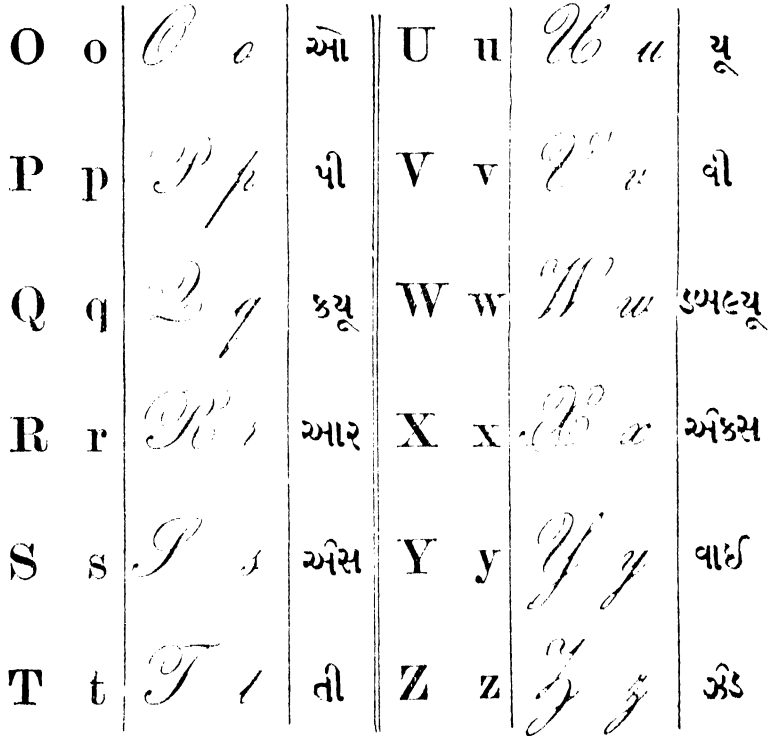 O o O o ઓ U u U u યૂ
P p P p પી V v V v વી
Q q Q q કયૂ W w W w ડબલ્યૂ
R r R r આર X x X x એકસ
S s S s એસ Y y Y y વાઈ
T t T t તી Z z Z z ઝેડ